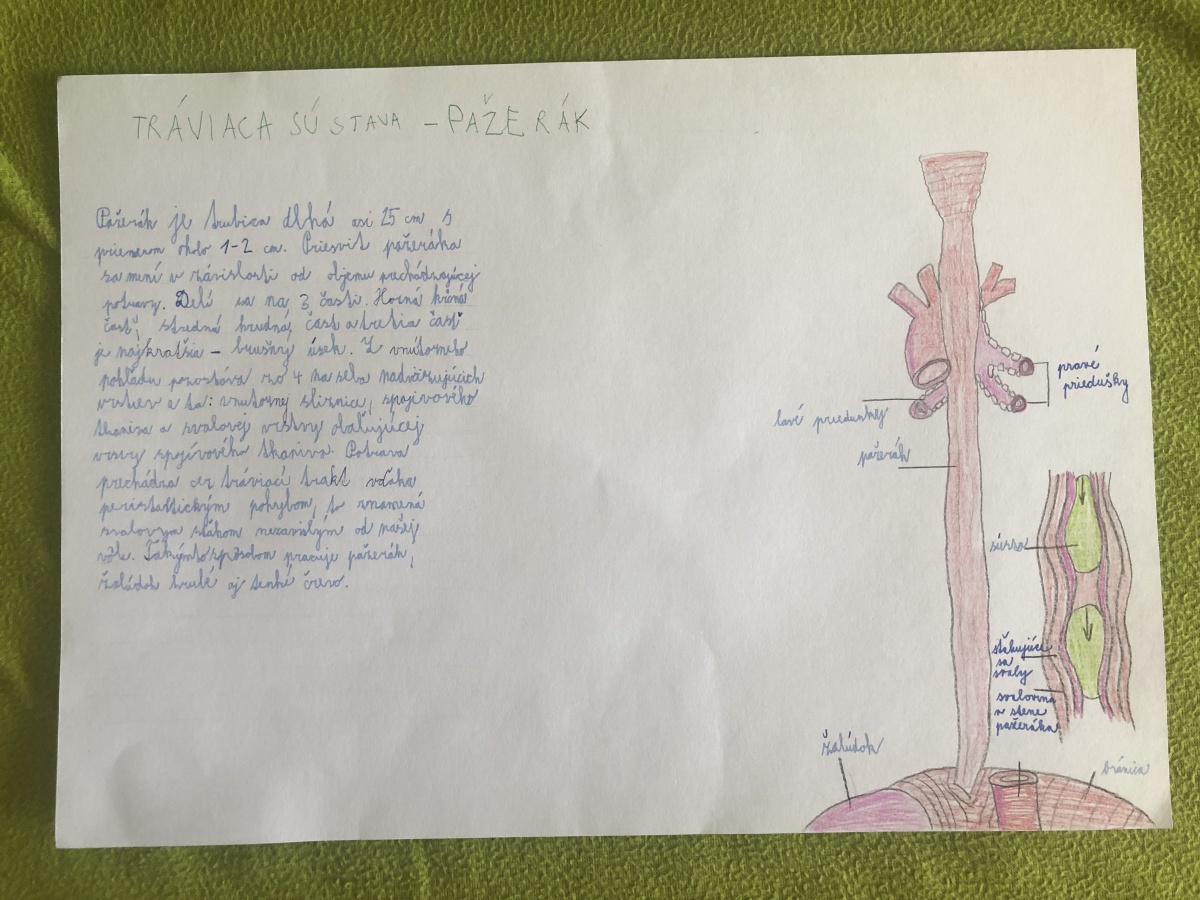 TRÁVIACA SÚSTAVA – PAŽERÁK
Pažerák je trubica dlhá asi 25 cm s
priemerom okolo 1-2 cm. Priesvit pažeráka
sa mení v závislosti od objemu prechádzajúcej
potravy. Delí sa na 3 časti. Horná krčná
časť, stredná hrudná, časť a tretia časť
je najkratšia – brušný úsek. Z vnútorného
pohľadu pozostáva zo 4 na seba nadväzujúcich
vrstiev a to: vnutornej sliznice, spojivového
tkaniva a svalovej vrstvy obaľujúcej
vrsvy spojivového tkaniva. Potrava
prechádza cez tráviaci trakt vďaka
peristaltickým pohybom, to znamená
svalovym sťahom nezavislým od našej
vôle. Takýmto spôsobom pracuje pažerák,
žalúdok hrubé aj tenké črevo.
pravé
priedušky
lavé priedusnky
pažerák
sústo
sťahujúce
sa
svaly
svalovina
v stene
pažeráka
žalúdok
bránica